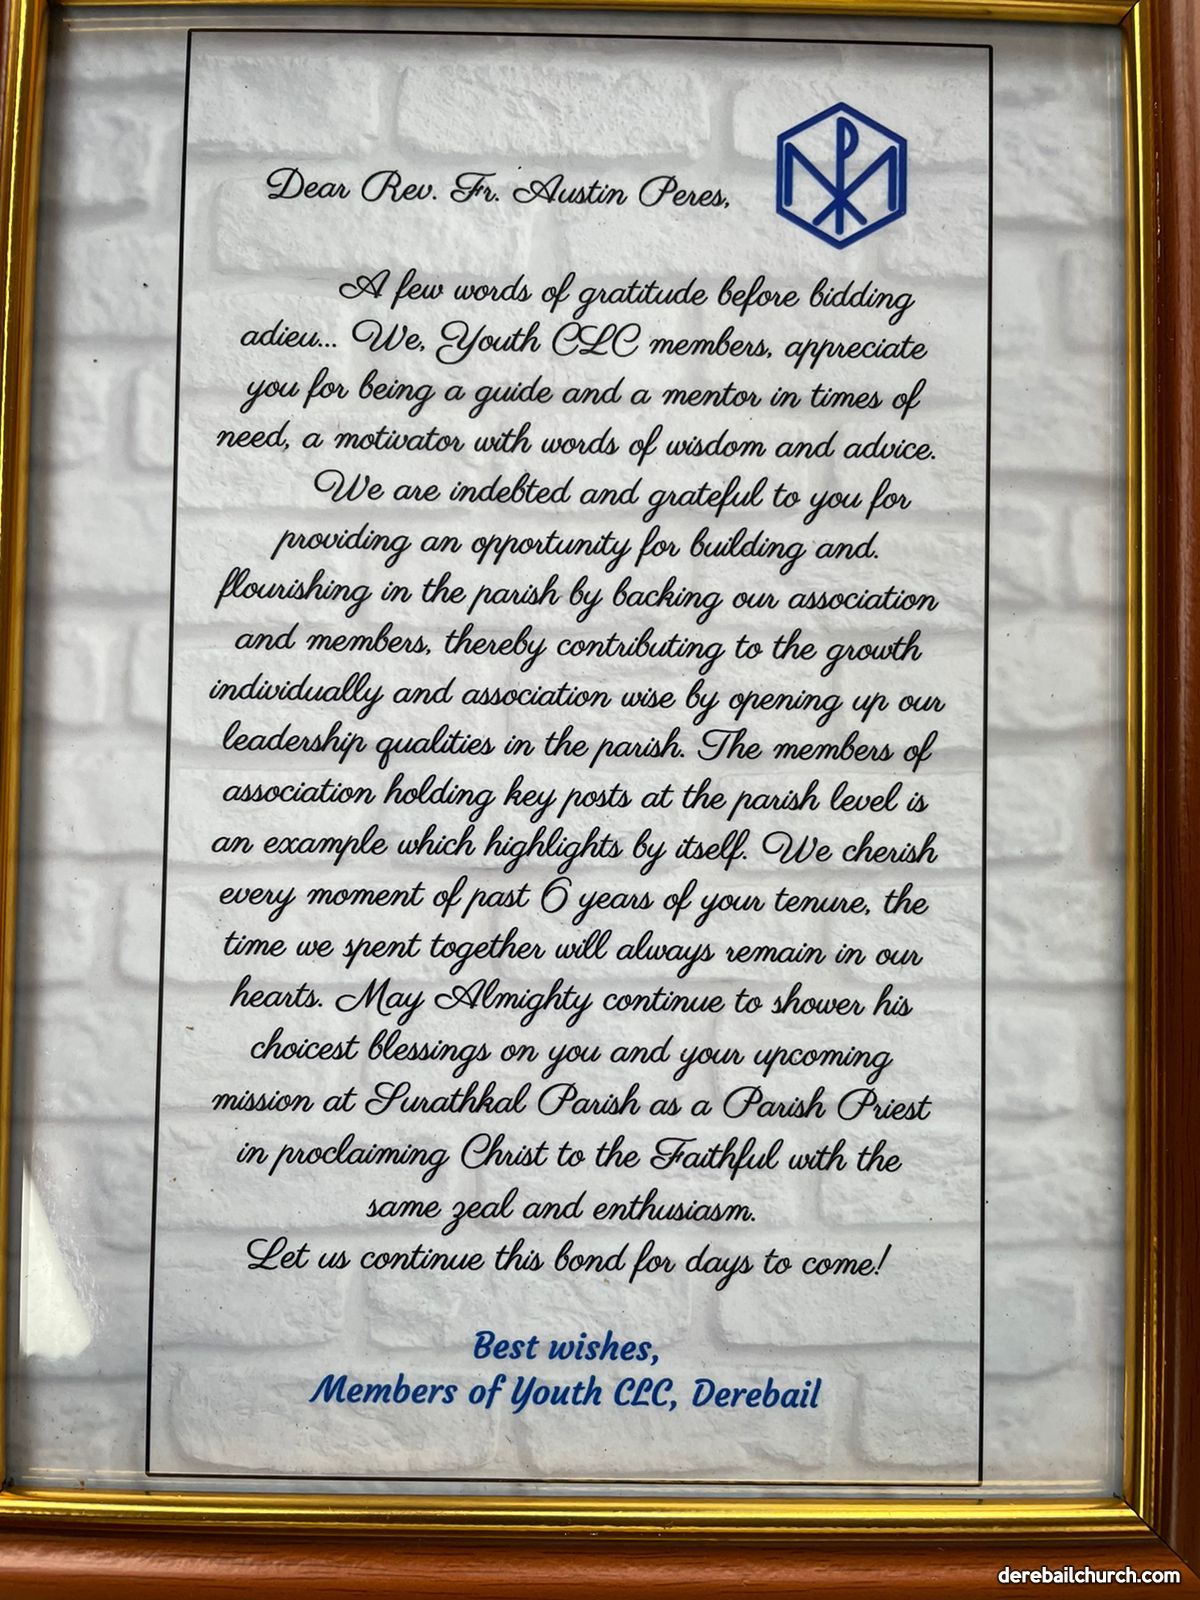 Dear Rev. Fr. Austin Peres,
A few words of gratitude before bidding
adieu... We, Youth CLC members, appreciate
you for being a guide and a mentor in times of
need, a motivator with words of wisdom and advice.
We are indebted and grateful to you for
providing an opportunity for building and.
flourishing in the parish by backing our association
and members, thereby contributing to the growth
individually and association wise by opening up our
leadership qualities in the parish. The members of
association holding key posts at the parish level is
an example which highlights by itself. We cherish
every moment of past 6 years of your tenure, the
time we spent together will always remain in our
hearts. May Almighty continue to shower his
choicest blessings on you and your upcoming
mission at Surathkal Parish as a Parish Priest
in proclaiming Christ to the Faithful with the
same zeal and enthusiasm.
Let us continue this bond for days to come!
Best wishes,
Members of Youth CLC, Derebail
derebailchurch.com